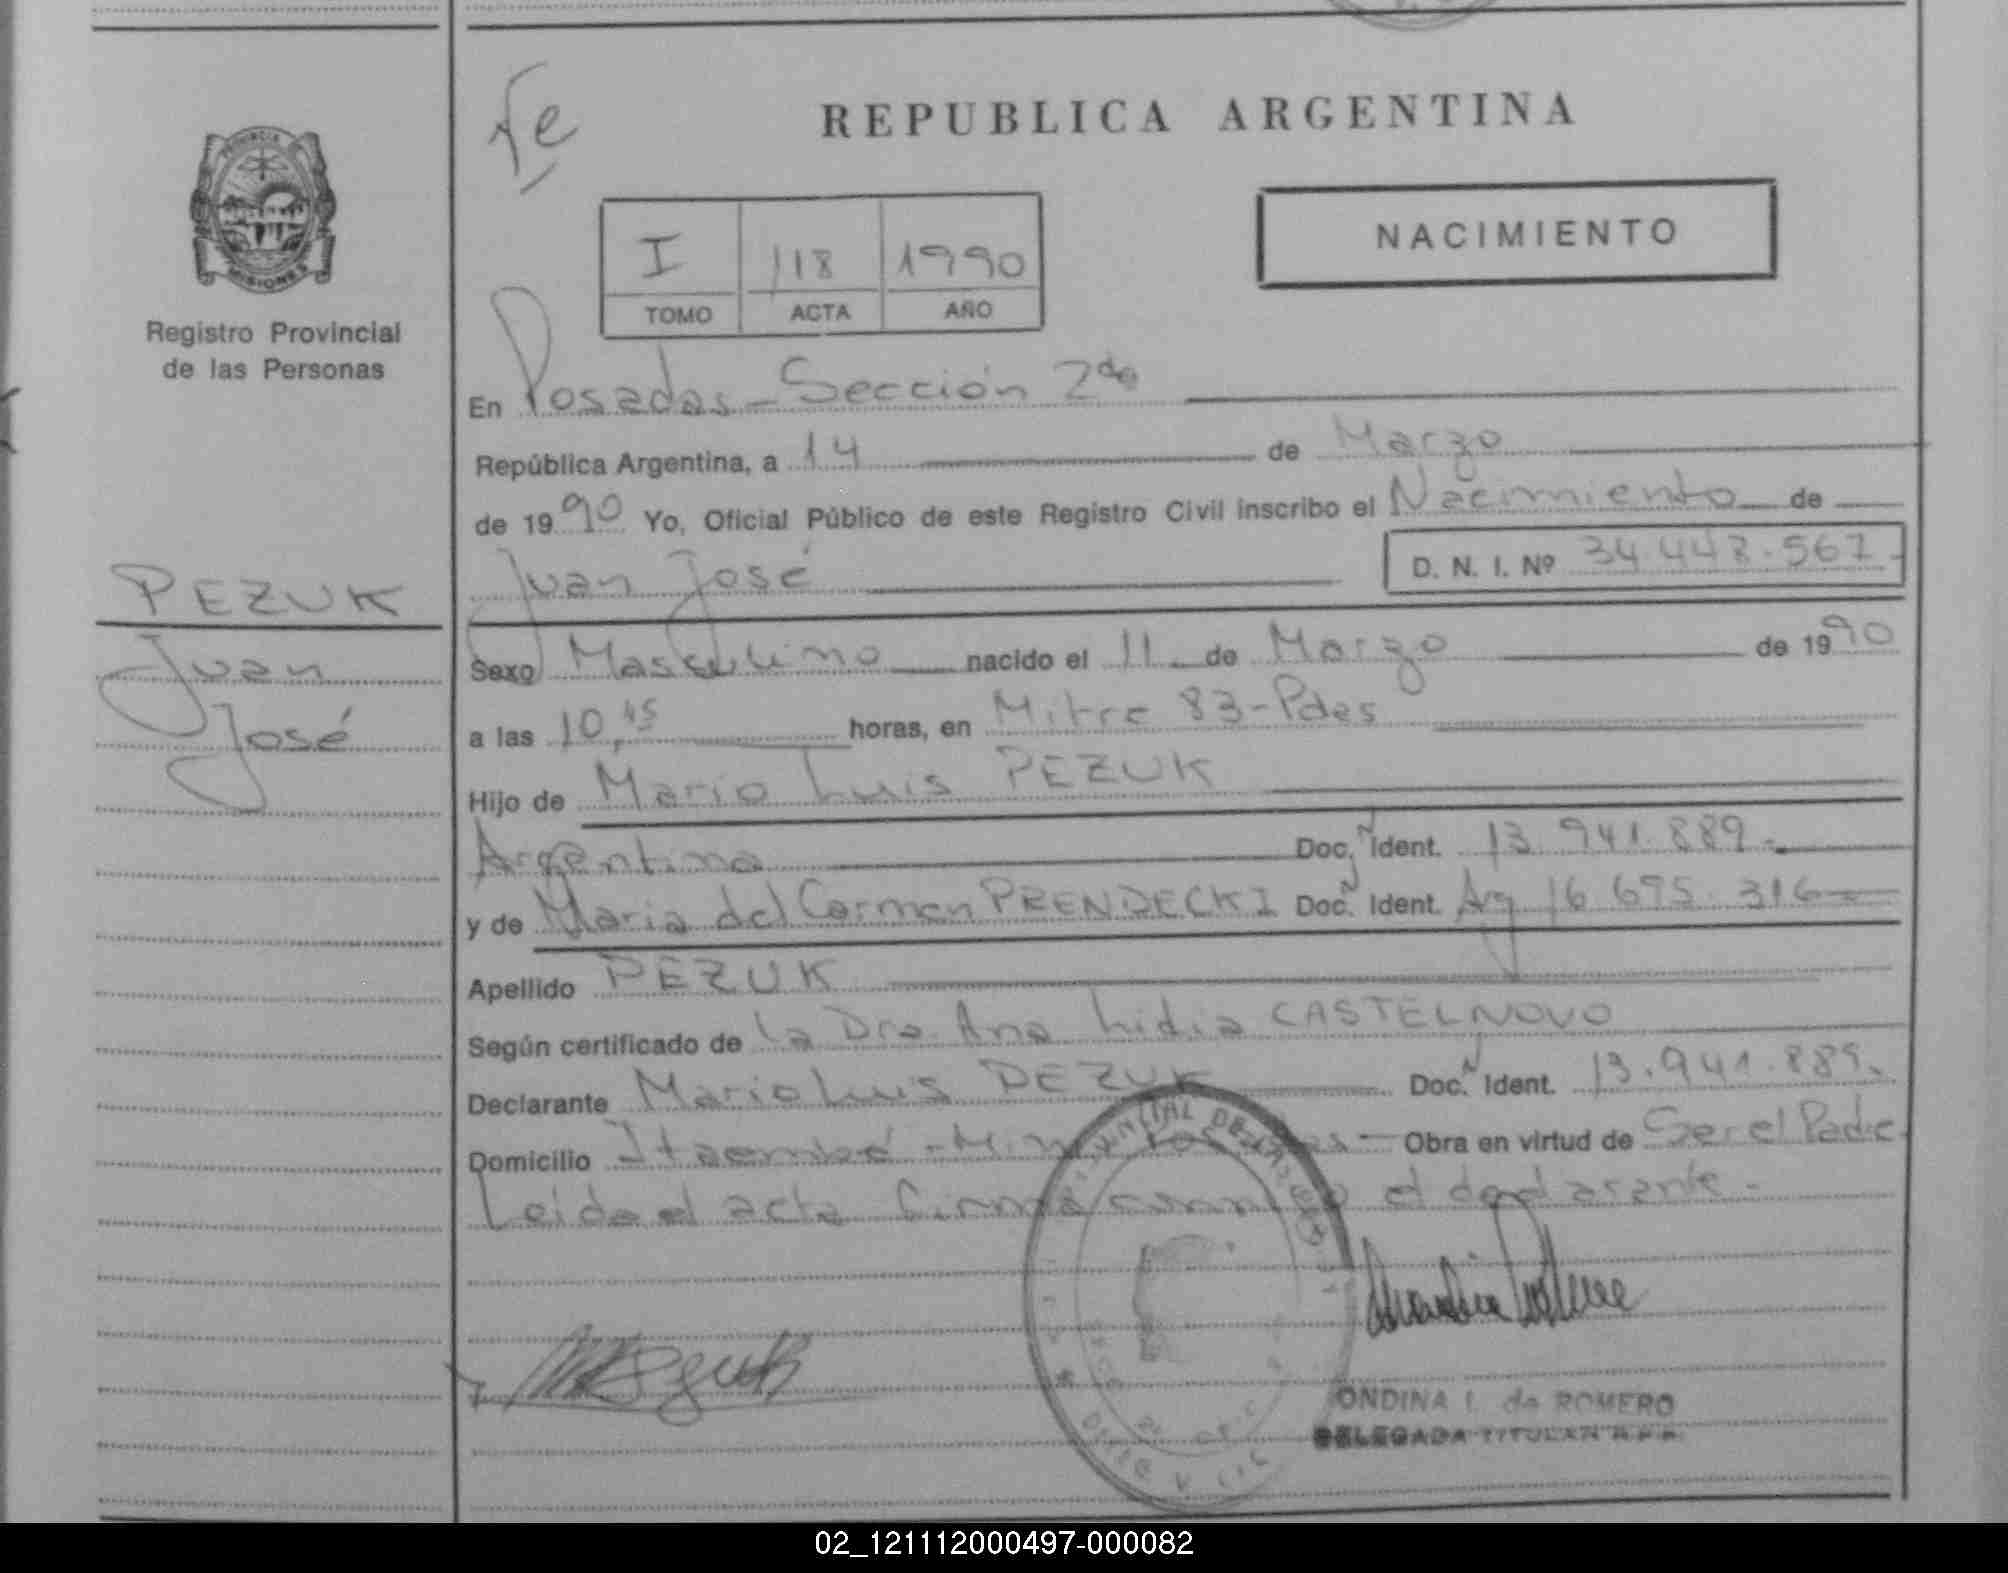 fe
REPUBLICA ARGENTINA
NACIMIENTO
PROVINCIA
MISIONES
I 118 1990
TOMO ACTA AÑO
Registro Provincial
de las Personas
En Posadas - Sección 2da
República Argentina, a 14 de Marzo
de 1990 Yo, Oficial Público de este Registro Civil inscribo el Nacimiento de
Juan José D. N. I. Nº 34.448.567.
PEZUK
Juan
José
Sexo Masculino nacido el 11 de Marzo de 1990
a las 10,45 horas, en Mitre 83-Pdas
Hijo de Mario Luis PEZUK
Argentino Doc. Ident. 13.941.889.-
y de Maria del Carmen PRENDECKI Doc. Ident. Arg 16.695.316
Apellido PEZUK
Según certificado de la Dra. Ana Lidia CASTELNOVO
Declarante Mario Luis PEZUK Doc. Ident. 13.941.889.
Domicilio Itaembé - Obra en virtud de Ser el Padre
Leida el acta firma el declarante.-
ONDINA I. de ROMERO
DELEGADA TITULAR R.P.P.
02_121112000497-000082